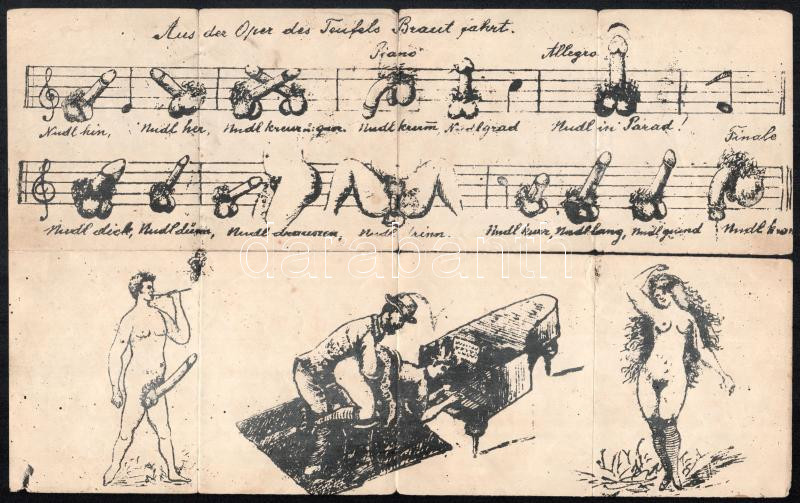 Aus der Oper des Teufels Braut fahrt.
Piano Allegro
Nudl hin, Nudl her, Nudl kreuz u. quer. Nudl krum, Nudl grad Nudl in Parad!
Finale
Nudl dick, Nudl dünn, Nudl draussen, Nudl rinn. Nudl kurz, Nudl lang, Nudl g'sund Nudl
darabanth